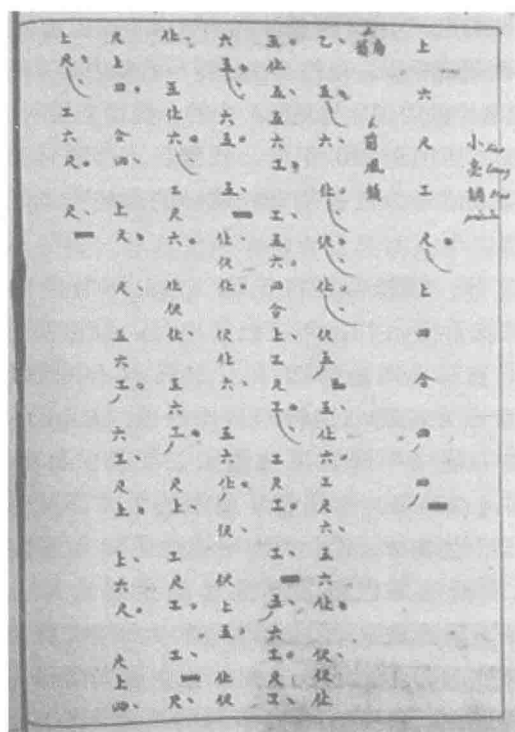 小亮調
上六尺工尺。上四合四四
乙、五。六仩。伬、仩、伬五仩六工尺六、五六仩。伬、伬仩
五。仩五、五、六工。工、五六四合上工尺工。工尺工、工、五、六工。尺工、
六五。五。五、仩伬仩。伬仩六、五仩。伬、伬上五。仩伬
仩、五仩六。工尺六。仩伬仩五六工。六尺上、工尺工。工、尺、
尺上四。合四、上尺。尺五六工、六尺上。上、六尺。尺上四、
上尺、工六尺。尺、